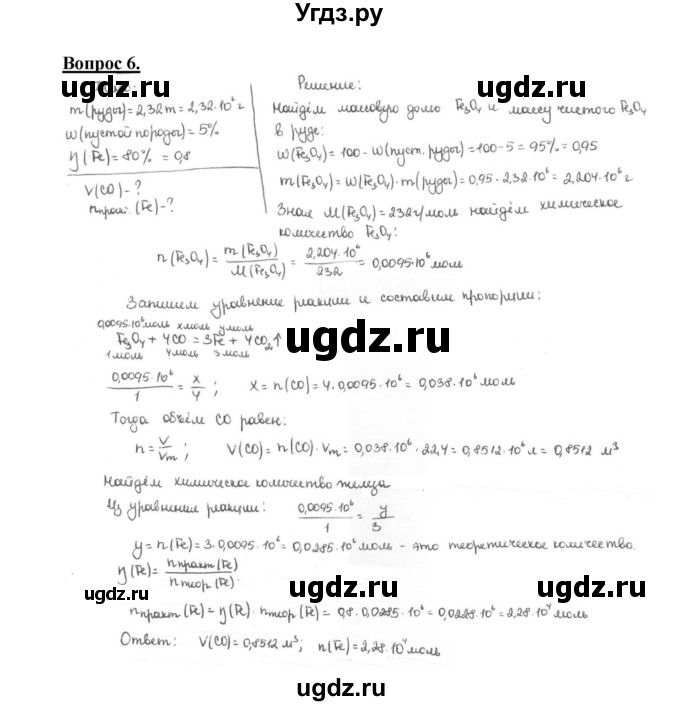 Угдз.ру
Вопрос 6.
m(руды)=2,32т=2,32·10⁶г
w(пустой породы)=5%
η(Fe)=80%=0,8
V(CO)-?
nпракт.(Fe)-?
Решение:
Найдём массовую долю Fe₃O₄ и массу чистого Fe₃O₄
в руде:
w(Fe₃O₄)=100-w(пуст. руды)=100-5=95%=0,95
m(Fe₃O₄)=w(Fe₃O₄)·m(руды)=0,95·2,32·10⁶=2,204·10⁶г
Зная M(Fe₃O₄)=232г/моль найдём химическое
количество Fe₃O₄:
n(Fe₃O₄)=m(Fe₃O₄)/M(Fe₃O₄)=2,204·10⁶/232=0,0095·10⁶моль
Запишем уравнение реакции и составим пропорции:
ugdz.ru
0,0095·10⁶моль xмоль yмоль
Fe₃O₄+4CO=3Fe+4CO₂↑
1моль 4моль 3моль
ugdz.ru
0,0095·10⁶/1=x/4; x=n(CO)=4·0,0095·10⁶=0,038·10⁶моль
Тогда объём CO равен:
ugdz.ru
n=V/Vm; V(CO)=n(CO)·Vm=0,038·10⁶·22,4=0,8512·10⁶л=0,8512 м³
Найдём химическое количество железа
ugdz.ru
Из уравнения реакции: 0,0095·10⁶/1=y/3
y=n(Fe)=3·0,0095·10⁶=0,0285·10⁶моль - это теоретическое количество.
η(Fe)=nпракт(Fe)/nтеор(Fe).
ugdz.ru ugdz.ru ugdz.ru
nпракт(Fe)=η(Fe)·nтеор(Fe)=0,8·0,0285·10⁶=0,0228·10⁶=2,28·10⁴моль
Ответ: V(CO)=0,8512 м³; n(Fe)=2,28·10⁴моль
ugdz.ru
ugdz.ru